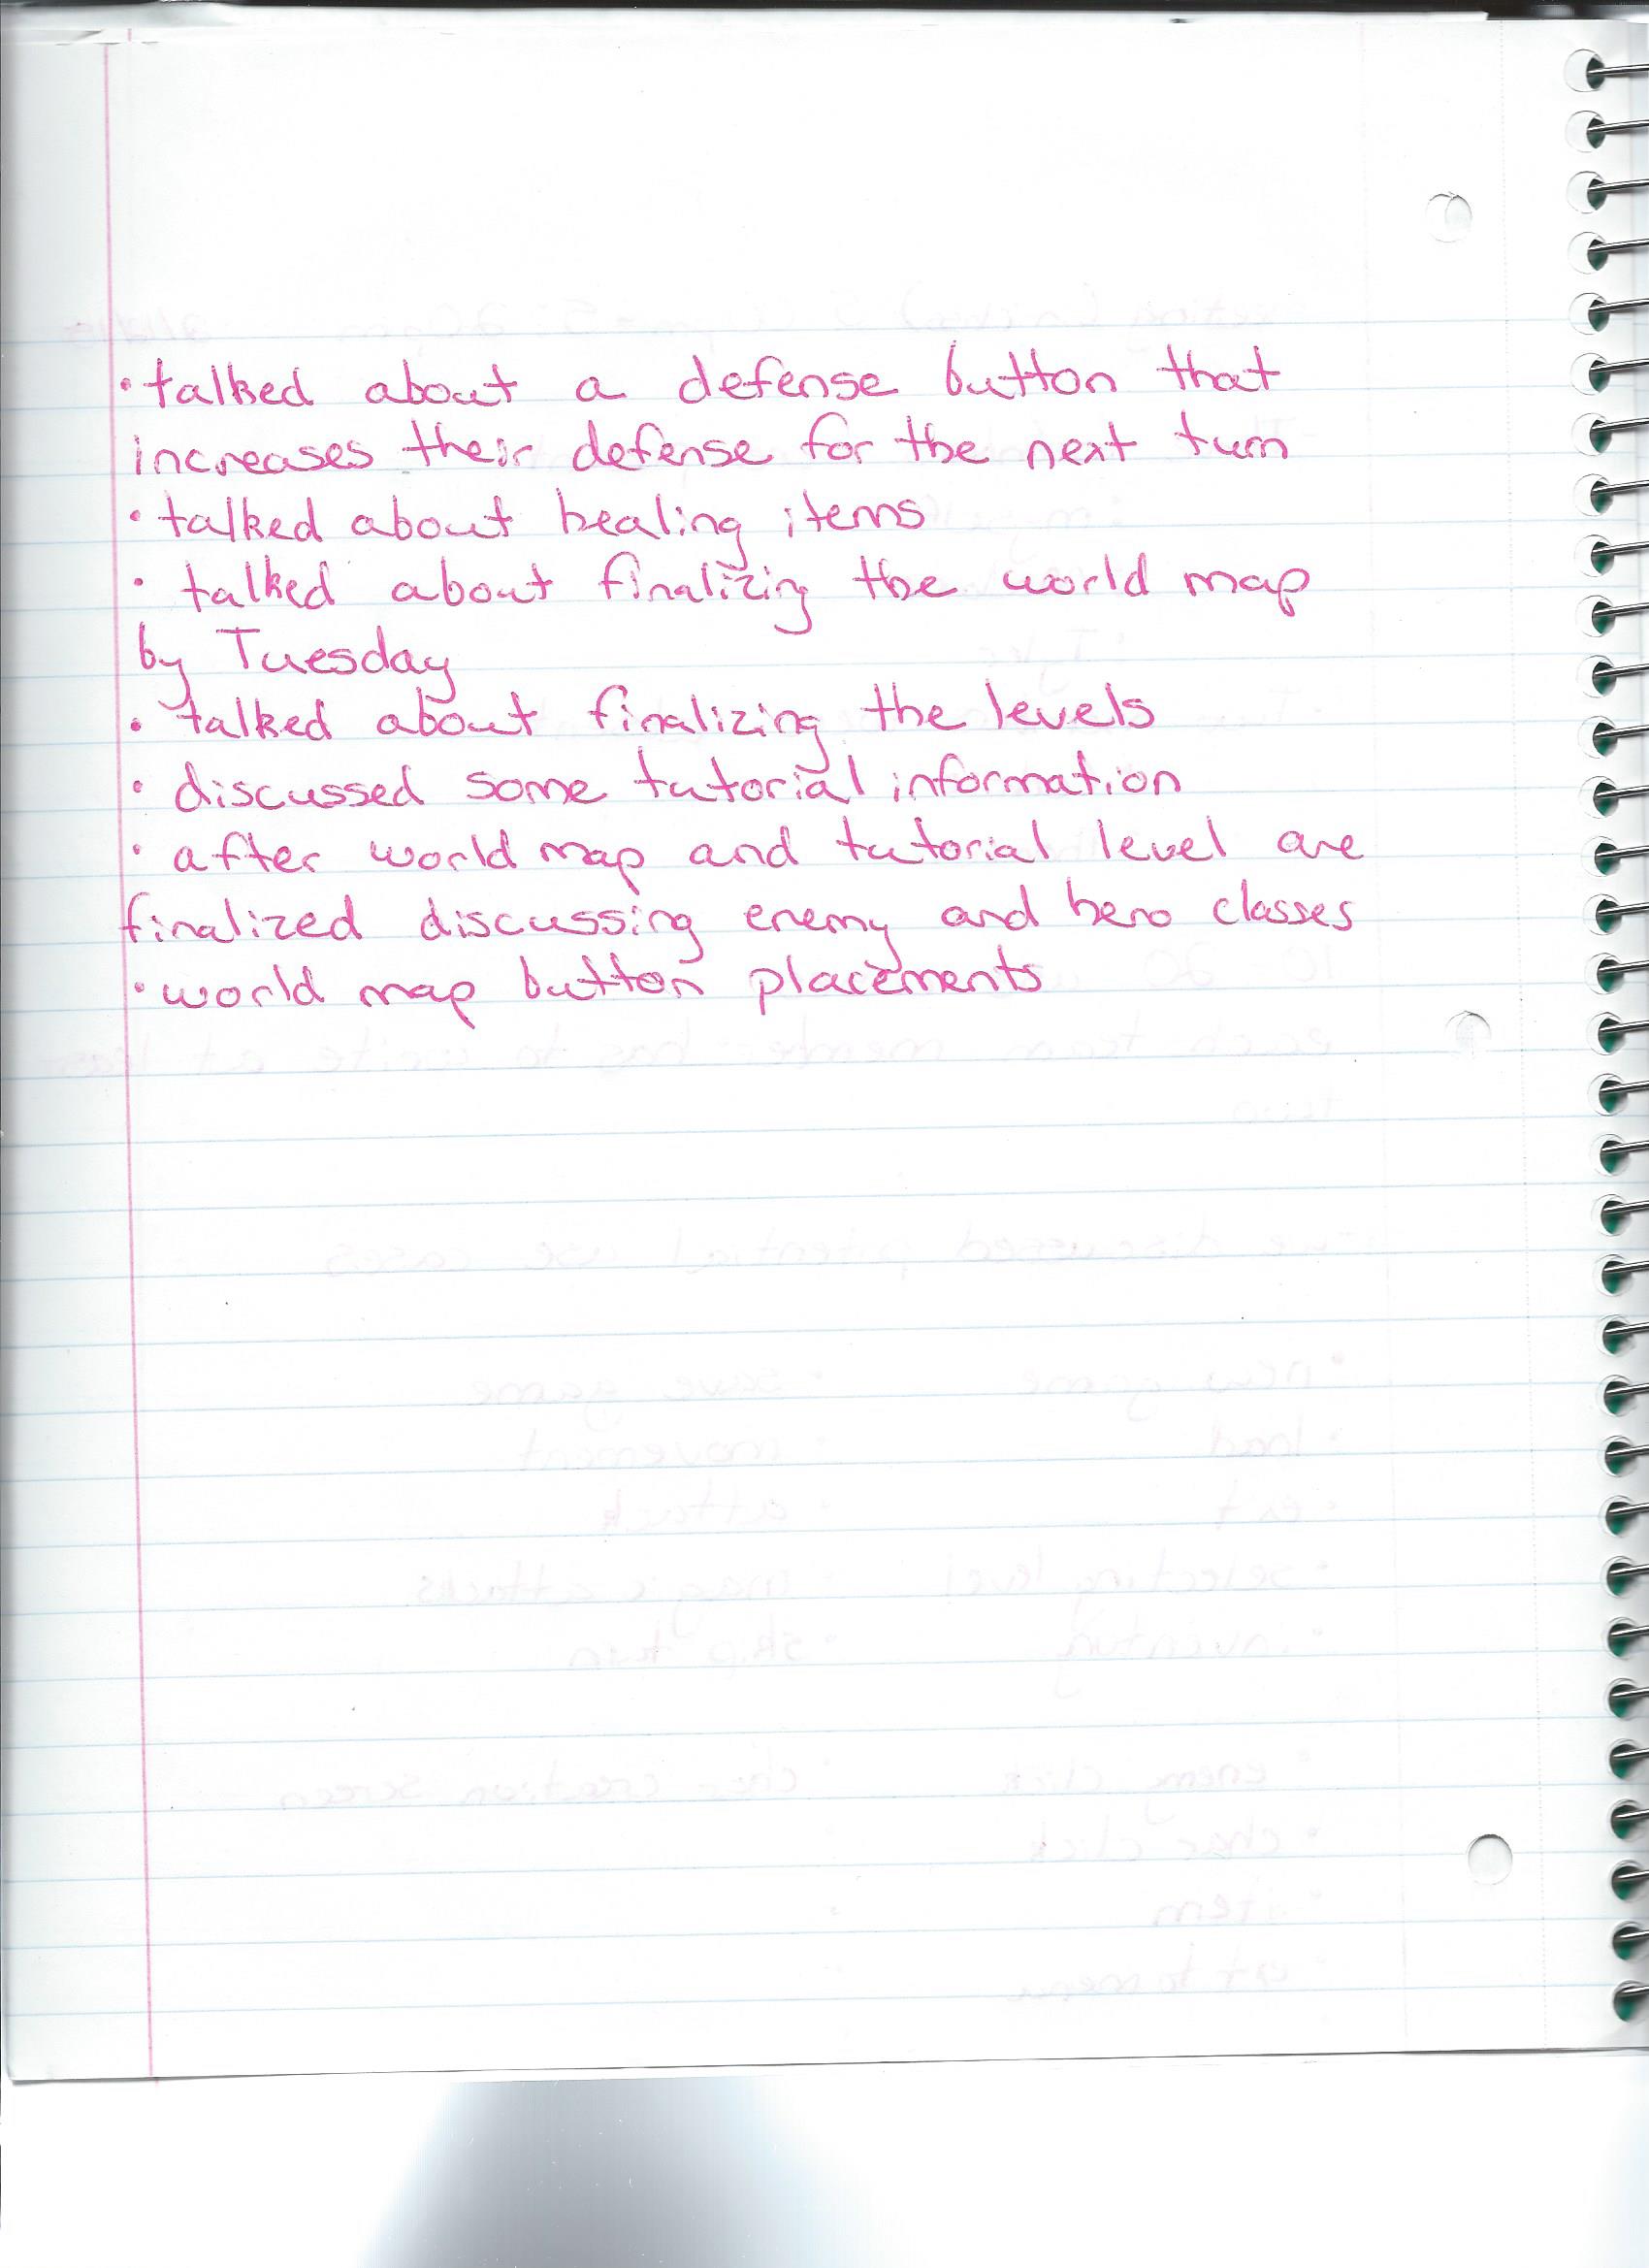 · talked about a defense button that
increases their defense for the next turn
· talked about healing items
· talked about finalizing the world map
by Tuesday
· talked about finalizing the levels
· discussed some tutorial information
· after world map and tutorial level are
finalized discussing enemy and hero classes
· world map button placements